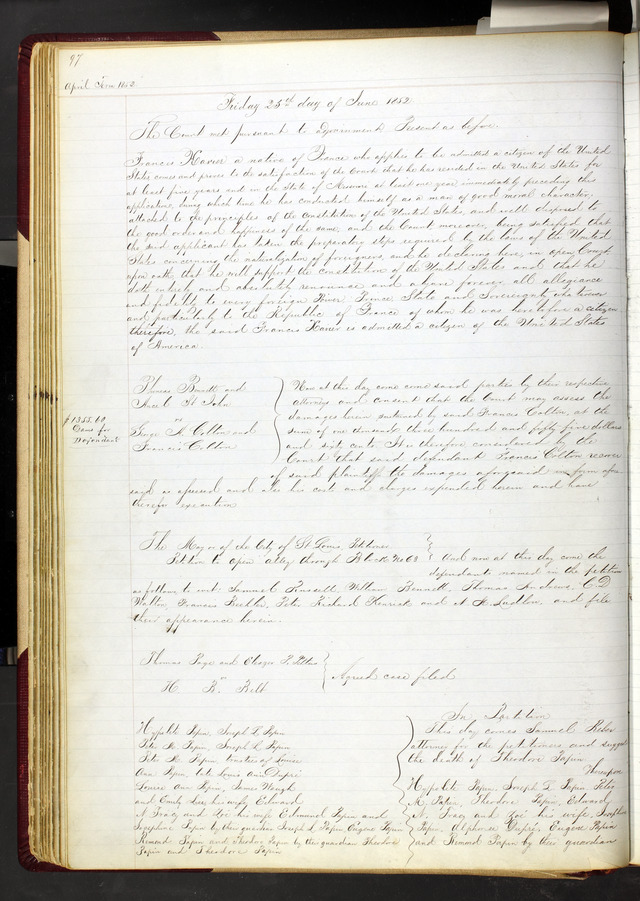 97
April Term 1852
Friday 25th day of June 1852
The Court met pursuant to adjournment Present as before
Francis Xavier a native of France who applies to be admitted a citizen of the United
States comes and proves to the satisfaction of the Court that he has resided in the United States for
at least five years and in the State of Missouri at least one year immediately preceding this
application, during which time he has conducted himself as a man of good moral character,
attached to the principles of the Constitution of the United States, and well disposed to
the good order and happiness of the same, and the Court moreover, being satisfied that
the said applicant has taken the preparatory steps required by the laws of the United
States concerning the naturalization of foreigners, and he declaring here, in open Court
upon oath, that he will support the constitution of the United States and that he
doth entirely and absolutely renounce and abjure forever all allegiance
and fidelity to every foreign Power Prince State and Sovereignty whatever
and particularly to the Republic of France of whom he was heretofore a citizen
therefore, the said Francis Xavier is admitted a citizen of the United States
of America.
Thomas and
St John
vs
George H. Colton and
Francis Colton
$1355.60
Dams for
Defendant
Now at this day come come said parties by their respective
attorneys and consent that the Court may assess the
damages herein sustained by said Francis Colton, at the
sum of one thousand three hundred and forty five dollars
and sixty cents It is therefore considered by the
Court that said defendant Francis Colton recover
of said plaintiffs the damages aforesaid in form afore
said as assessed and also his costs and charges expended herein and have
therefor execution
The Mayor of the City of St Louis, Petitioner
Petition to open alley through Block No 63
And now at this day come the
defendants named in the petition
as follows to wit: Samuel Russell, William Bennett, Thomas Andrews, C D
Walton, Francis Peter Richard Kenrick and N. M. Ludlow, and file
their appearance herein.
Thomas Page and
vs
H. R. Belt
Agreed case filed
In Partition
Hypolite Papin, Joseph L Papin
Peter M Papin, Joseph L Papin
Peter M Papin, trustees of Louise
Ann Papin, late Louise Ann Dupré
Louise Ann Papin, James Waugh
and Emily his wife, Edward
N Tracy and Zoe his wife Edmund Papin and
Josephine Papin by their guardian Joseph L Papin Eugene Papin
Rimond Papin and Theodore Papin by their guardian Theodore
Papin and Theodore Papin
This day comes Samuel Reber
attorney for the petitioners and suggests
the death of Theodore Papin
Whereupon
Hypolite Papin, Joseph L Papin Peter
M. Papin, Theodore Papin, Edward
N Tracy and Zoe his wife, Josephine
Papin, Alphonse Dupré, Eugene Papin
and Rimond Papin by their guardian